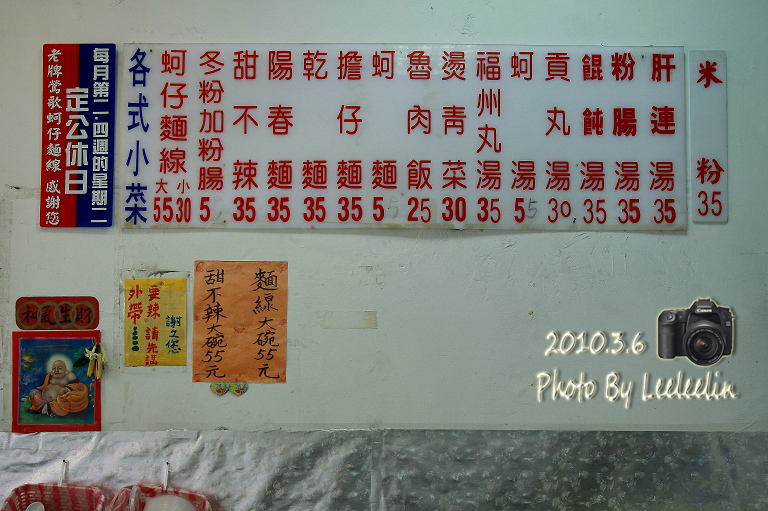 老牌鶯歌蚵仔麵線 感謝您
定公休日
每月第二.四週的星期二
各式小菜
蚵仔麵線 大55 小30
冬粉加粉腸 5
甜不辣 35
陽春麵 35
乾麵 35
擔仔麵 35
蚵麵 55
魯肉飯 25
燙青菜 30
福州丸湯 35
蚵湯 55
貢丸湯 30
餛飩湯 35
粉腸湯 35
肝連湯 35
米粉 35
和氣生財
外帶
要辣 請先講
謝謝您
麵線大碗55元
甜不辣大碗55元
2010.3.6
Photo By Leeleelin